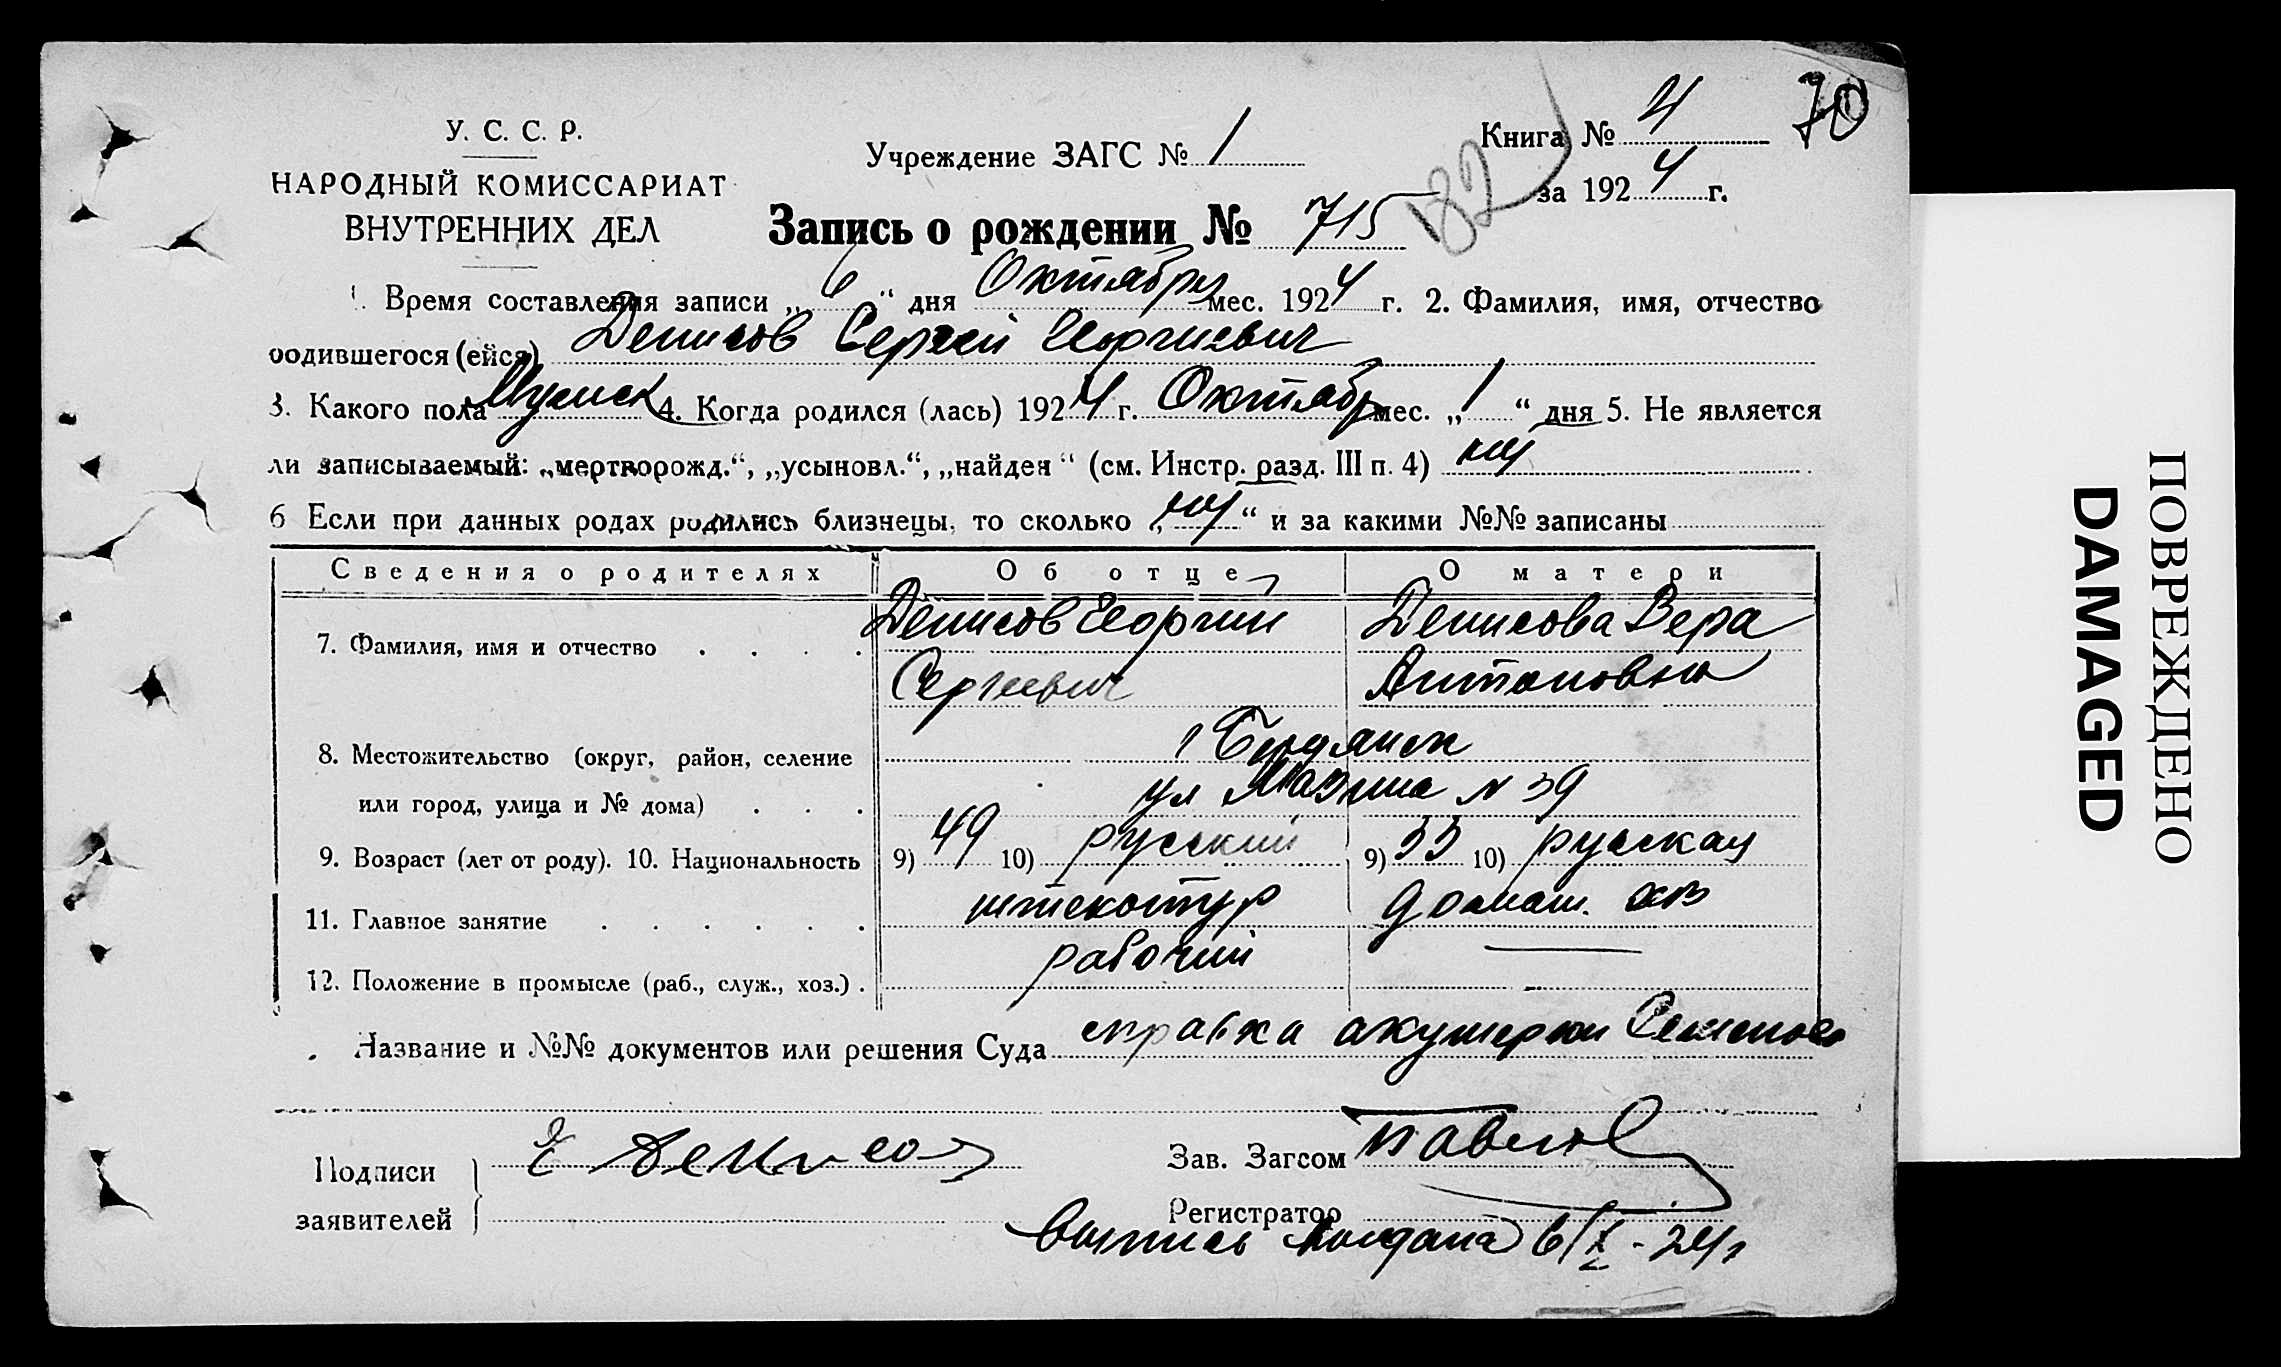 70
У. С. С. Р.
НАРОДНЫЙ КОМИССАРИАТ
ВНУТРЕННИХ ДЕЛ
Учреждение ЗАГС № 1
Книга № 4
за 1924 г.
82
Запись о рождении № 715
1. Время составления записи „6“ дня Октября мес. 1924 г. 2. Фамилия, имя, отчество
родившегося (ейся) Денисов Сергей Георгиевич
3. Какого пола Мужск 4. Когда родился (лась) 1924 г. Октябр мес. „1“ дня 5. Не является
ли записываемый: „мертворожд.“, „усыновл.“, „найден“ (см. Инстр. разд. III п. 4) нет
6 Если при данных родах родились близнецы, то сколько „нет“ и за какими №№ записаны
Сведения о родителях Об отце О матери
7. Фамилия, имя и отчество . . . . Денисов Георгий Денисова Вера
Сергеевич Антоновна
8. Местожительство (округ, район, селение г Бердянск
или город, улица и № дома) . . . ул Мазина N 39
9. Возраст (лет от роду). 10. Национальность 9) 49 10) русский 9) 33 10) русская
11. Главное занятие . . . . . . штукатур домаш. хоз
12. Положение в промысле (раб., служ., хоз.) . рабочий —
Название и №№ документов или решения Суда справка акушерки
Подписи
заявителей
Г Денисов
Зав. Загсом
Регистратор
Выпись выдана 6/X - 24 г
ПОВРЕЖДЕНО
DAMAGED